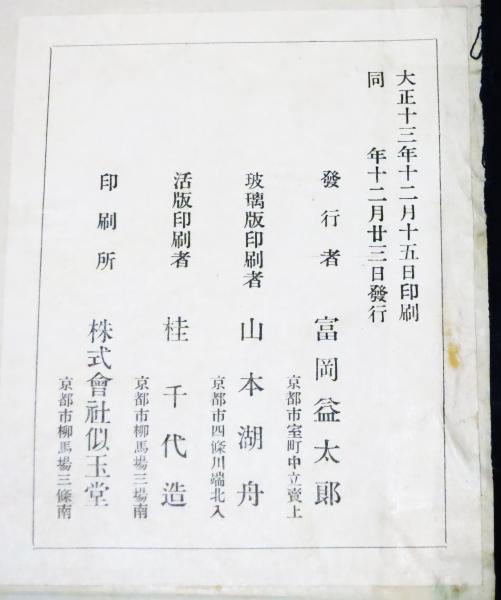 大正十三年十二月十五日印刷
同　年十二月廿三日發行
發行者　富岡益太郎
京都市室町中立賣上
玻璃版印刷者　山本湖舟
京都市四條川端北入
活版印刷者　桂千代造
京都市柳馬場三場南
印刷所　株式會社似玉堂
京都市柳馬場三條南